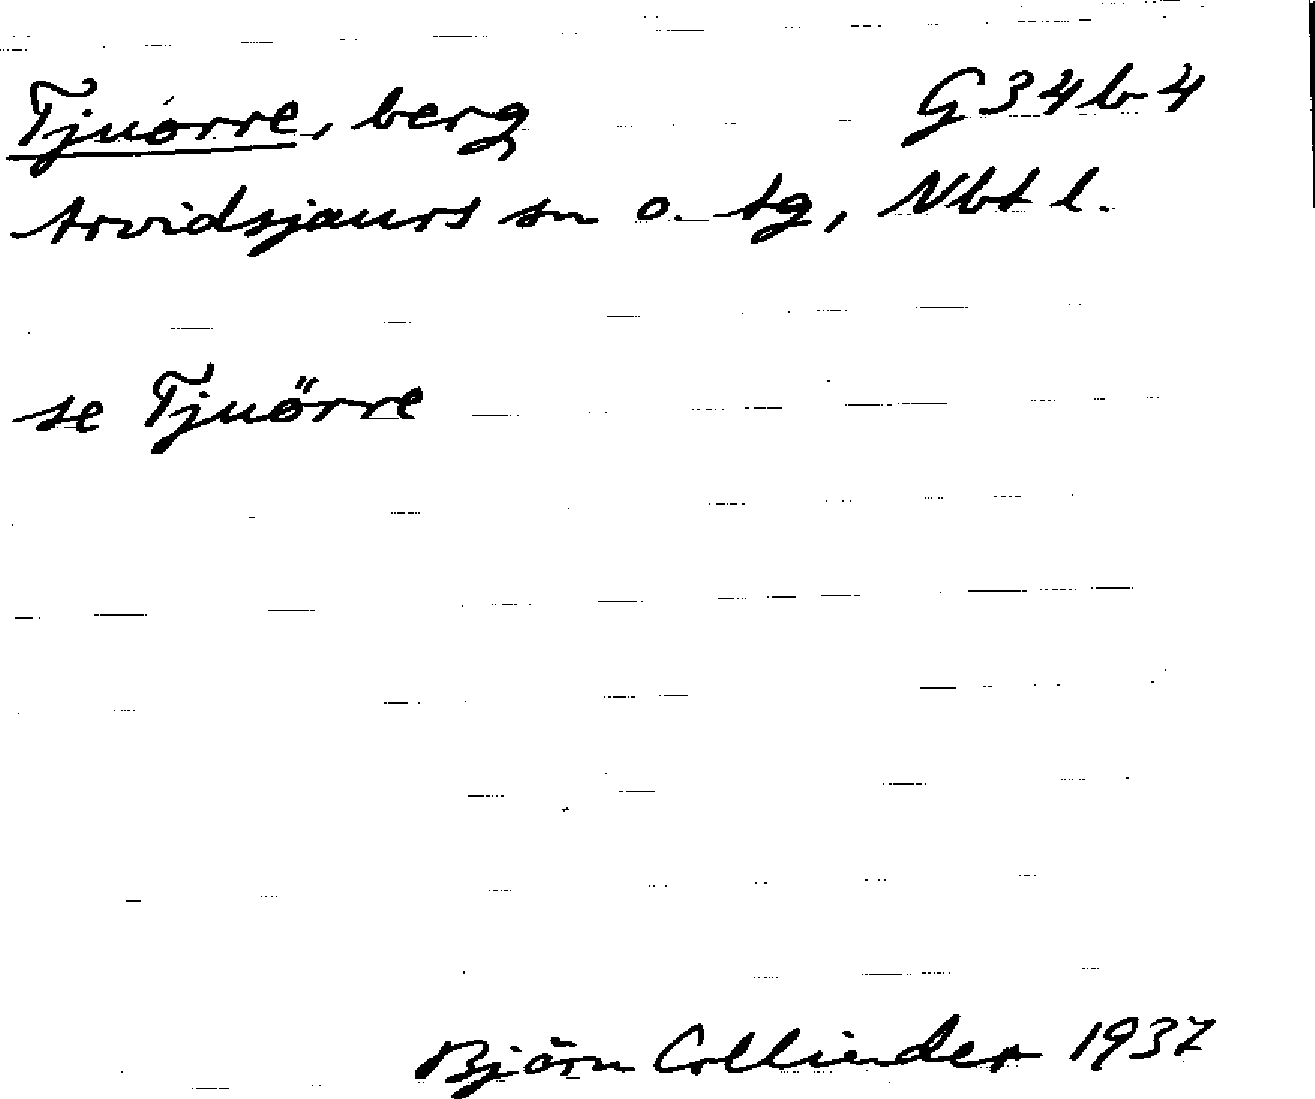 Tjuorre, berg G 34 b 4
Arvidsjaurs sn o. tg, Nbt l.
se Tjuörre
Björn Collinder 1937